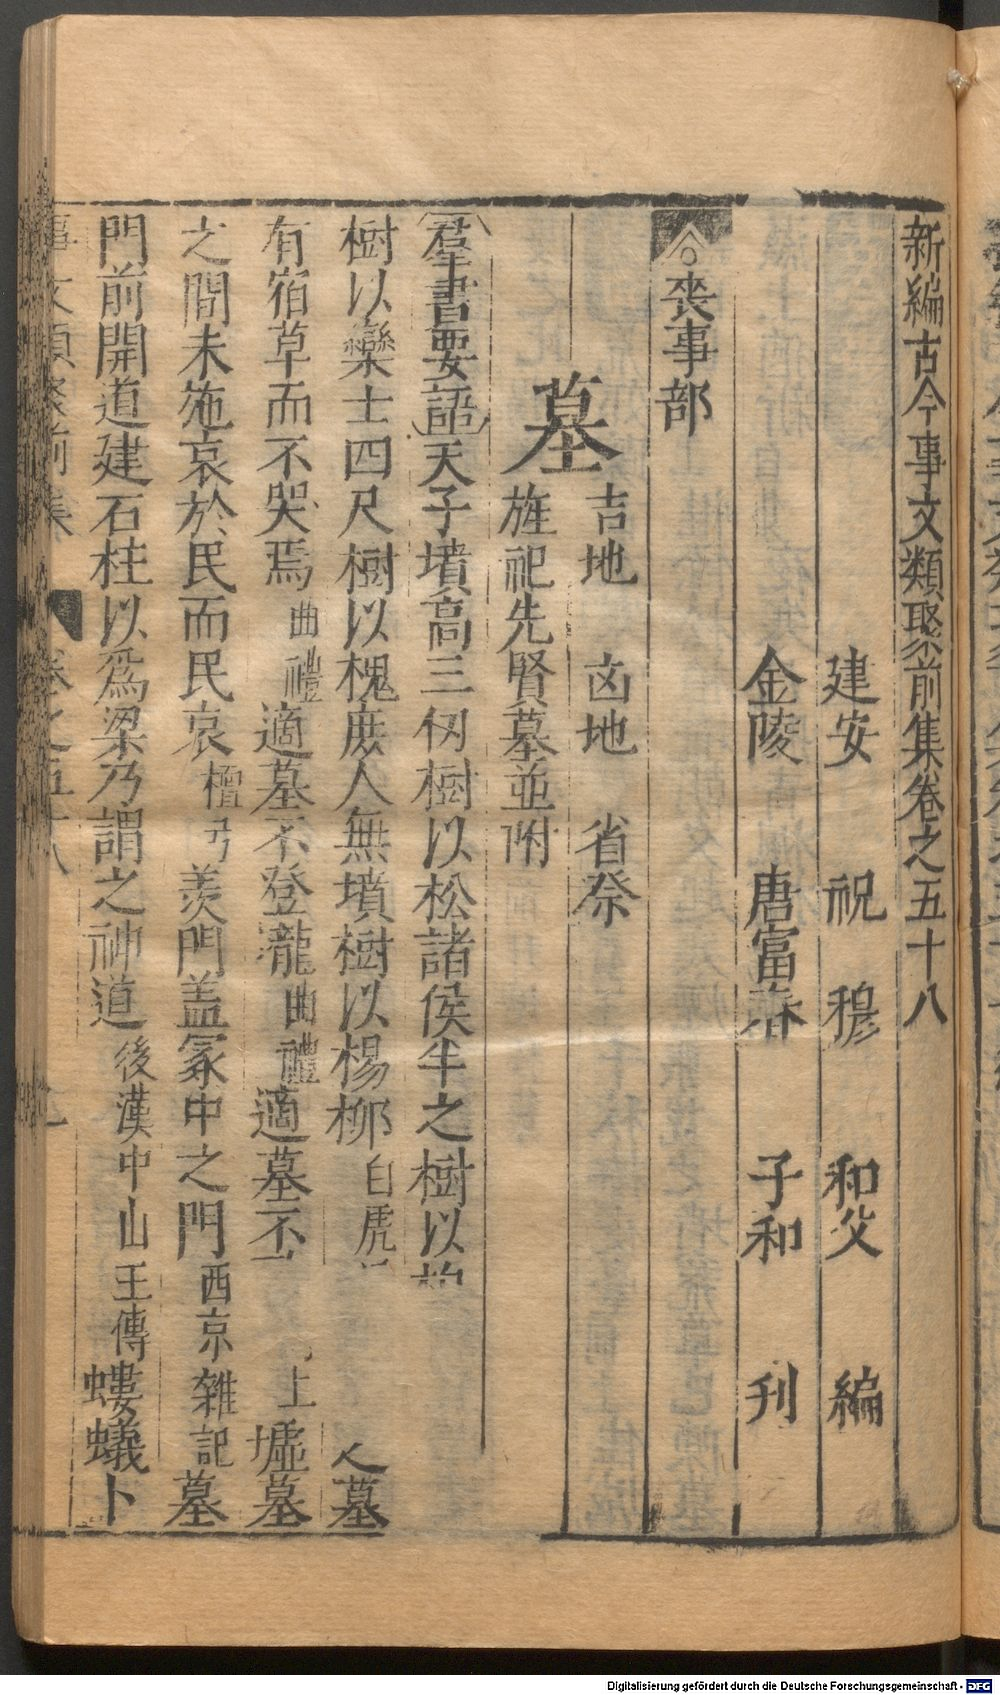 新編古今事文類聚前集卷之五十八
建安 祝 穆 和父 編
金陵 唐富春 子和 刊
喪事部
墓 吉地 凶地 省祭
旌祀先賢墓並附
羣書要語天子墳高三仞樹以松諸侯半之樹以柏
樹以欒士四尺樹以槐庶人無墳樹以楊柳白虎 人墓
有宿草而不哭焉曲禮適墓不登壠曲禮適墓不 上墟墓
之間未施哀於民而民哀檀弓羨門盖冢中之門西京雜記墓
門前開道建石柱以爲梁乃謂之神道後漢中山王傳螻蟻卜
事文類聚前集 卷之五十八
Digitalisierung gefördert durch die Deutsche Forschungsgemeinschaft - DFG